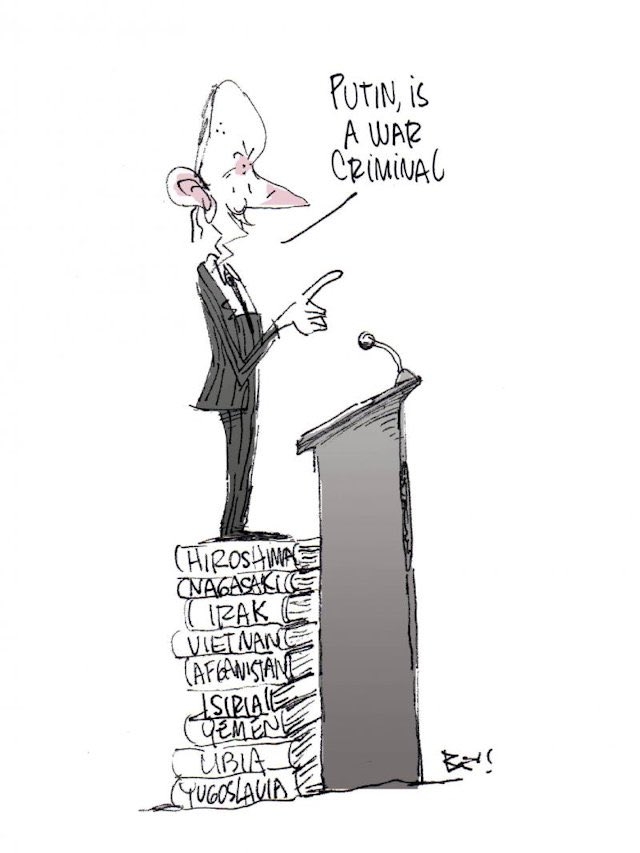 PUTiN, iS
A WAR
CRiMiNAL
HiROSHIMA
NAGASAKI
IRAK
VIETNAN
AFGANISTAN
SIRIA
YEMEN
LIBIA
YUGOSLAVIA